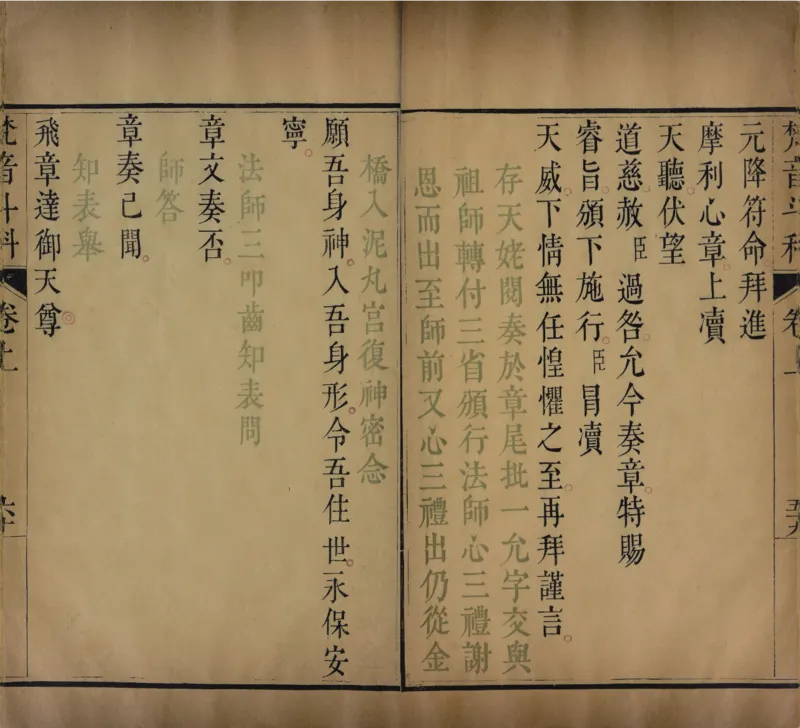 梵音斗科 卷上 五十九
元降符命拜進
摩利心章。上瀆
天聽。伏望
道慈。赦臣過咎。允今奏章。特賜
睿旨。頒下施行。臣冒瀆
天威。下情無任惶懼之至。再拜謹言。
存天姥閱奏於章尾批一允字交與
祖師轉付三省頒行法師心三禮謝
恩而出至師前又心三禮出仍從金
橋入泥丸宫復神密念
願吾身神。入吾身形。令吾住世。永保安
寧。
法師三叩齒知表問
章文奏否。
師答
章奏已聞。
知表舉
飛章達御天尊。
梵音斗科 卷上 六十